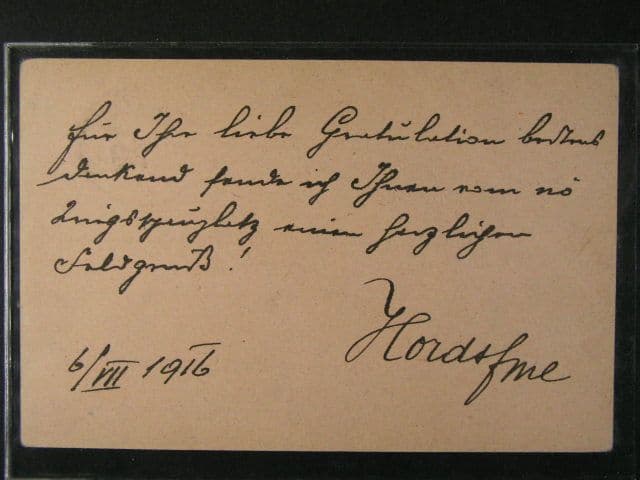 Für Ihre liebe Gratulation bestens
dankend sende ich Ihnen vom nö
einen herzlichen
Feldgruß!
6/VIII 1916